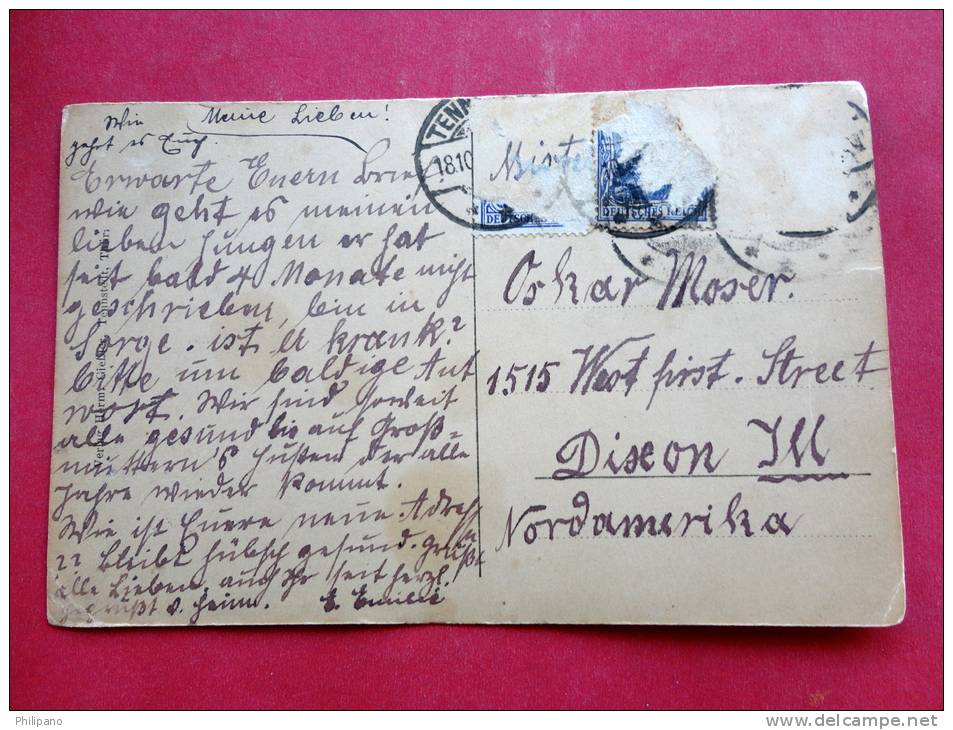 Wie Meine Lieben!
geht es Euch.
Erwarte Euern Brief
wie geht es meinen
lieben Jungen er hat
seit bald 4 Monate nicht
geschrieben, bin in
Sorge. ist er krank?
bitte um baldige Ant
wort. Wir sind soweit
alle gesund bis auf Groß=
mutter's Husten der alle
Jahre wieder kommt.
Wie ist Euere neue Adreß
?? bleibt hübsch gesund. grüßt
alle Lieben, auch Ihr seit herzl.
gegrüßt v. heim. E. Emilie
18.10
DEUTSCHES
DEUTSCHES REICH
Oskar Moser.
1515 West first. Street
Dixon Ill
Nordamerika
Philipano
www.delcampe.net